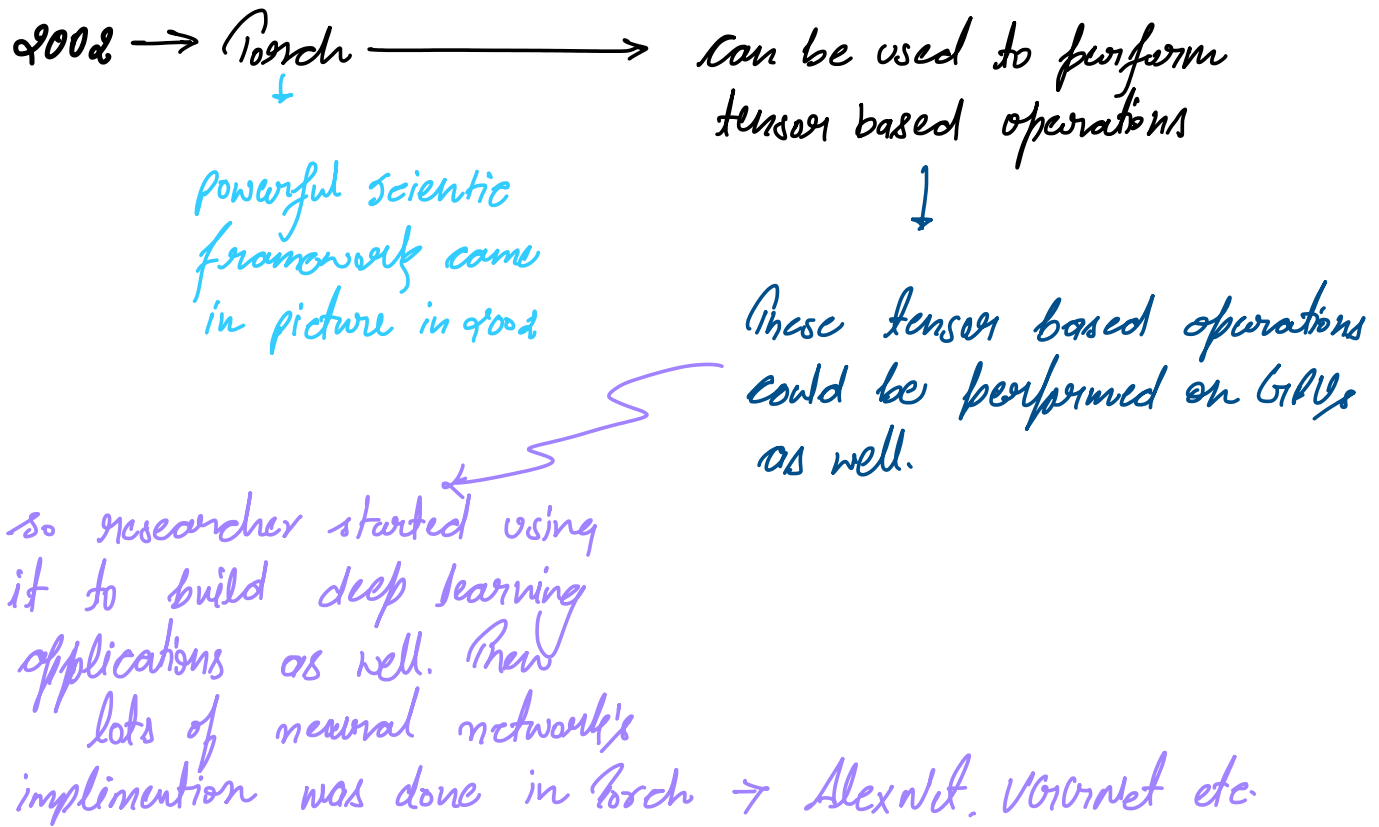 2002 → Torch → can be used to perform
tensor based operations
↓
powerful scientic
framework came
in picture in 2002
↓
These tensor based operations
could be performed on GPUs
as well.
so researcher started using
it to build deep learning
applications as well. Then
lots of neural network's
implimention was done in Torch → AlexNet, VGGNet etc.